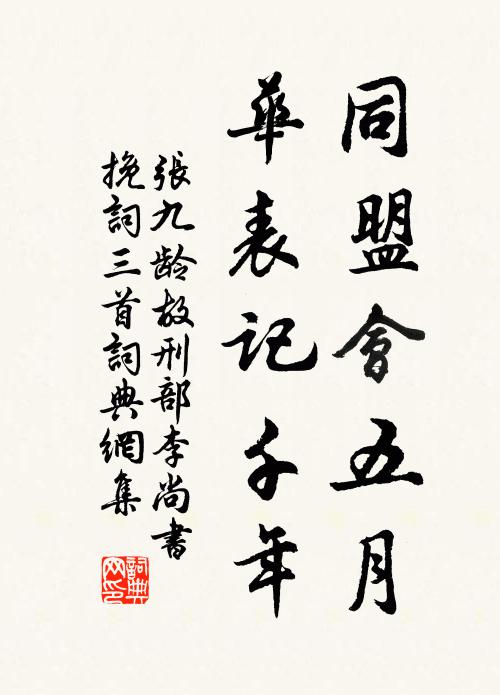 同盟會五月
華表記千年
張九龄故刑部李尚書
挽詞三首詞典網集
詞典网印